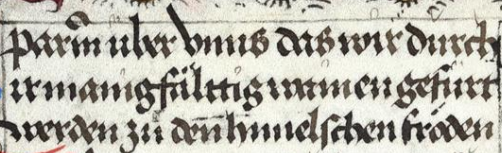 parm̄ uber vnns das wir durch
ir manigfälttig namen gefurt
werden zu den himelschen fröden